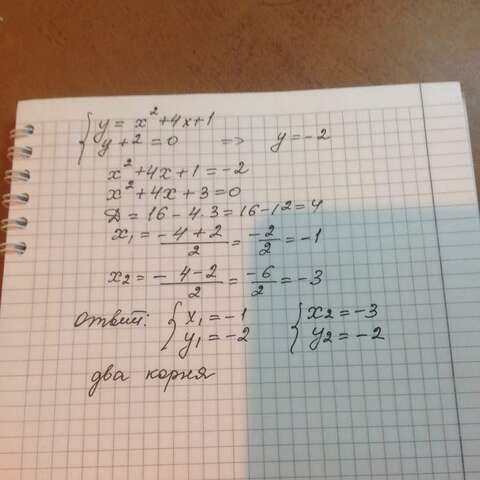 { y = x² + 4x + 1
{ y + 2 = 0 => y = -2
x² + 4x + 1 = -2
x² + 4x + 3 = 0
D = 16 - 4·3 = 16 - 12 = 4
x₁ = (-4 + 2)/2 = -2/2 = -1
x₂ = (-4 - 2)/2 = -6/2 = -3
Ответ: { x₁ = -1 { x₂ = -3
{ y₁ = -2 { y₂ = -2
два корня